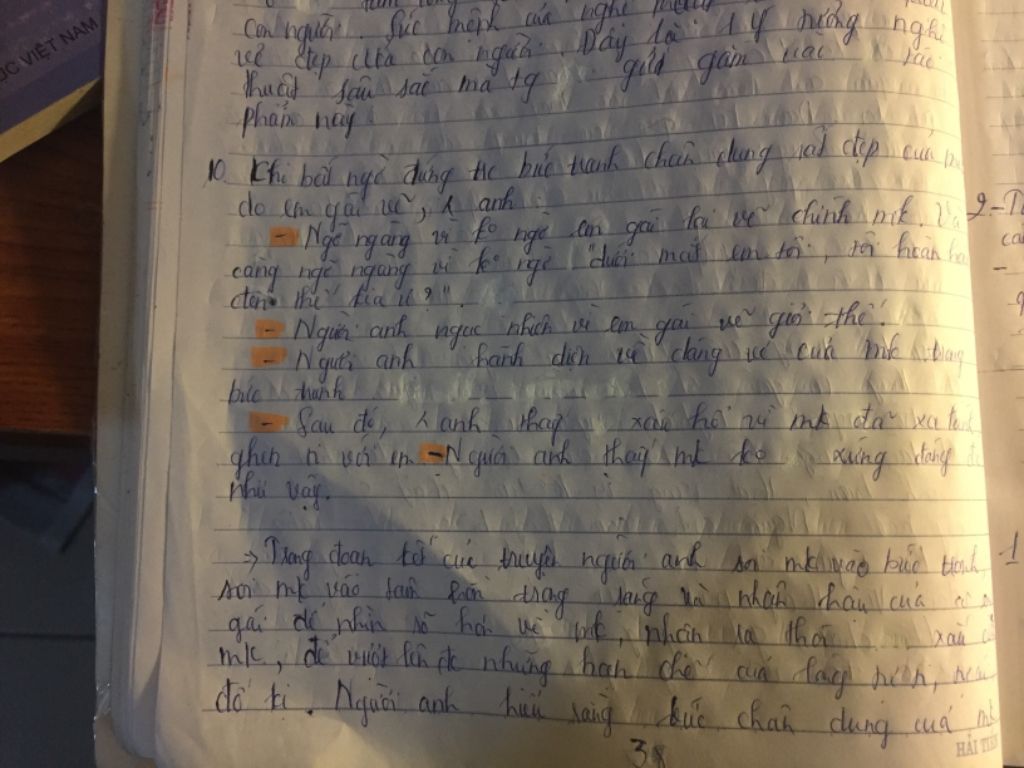 con người. Sức mệnh của nghệ
vẻ đẹp của con người. Đây là 1 ý tưởng nghệ
thuật sâu sắc mà tg gửi gắm vào tác
phẩm này
10. Khi bất ngờ đứng tc bức tranh chân dung rất đẹp của m
do em gái vẽ, anh
- Ngỡ ngàng vì ko ngờ em gái lại vẽ chính mk. Và
càng ngỡ ngàng vì ko ngờ "dưới mắt em tôi, tôi hoàn hả
đến thế kia ư?".
- Người anh ngạc nhiên vì em gái vẽ giỏi thế.
- Người anh hãnh diện về dáng vẻ của mk trong
bức tranh
- Sau đó, anh thấy xấu hổ vì mk đã xa lánh
ghen tị với em - Người anh thấy mk ko xứng đáng đc
như vậy.
→ Trong đoạn kết của truyện người anh soi mk vào bức tranh,
soi mk vào tâm hồn trong sáng và nhân hậu của cô em
gái để nhìn rõ hơn về mk, nhận ra thói xấu của
mk, để vượt lên đc những hạn chế của lòng
đố kị. Người anh hiểu rằng bức chân dung của mk
38
HẢI TIẾN
ỌC VIỆT NAM
2-
1